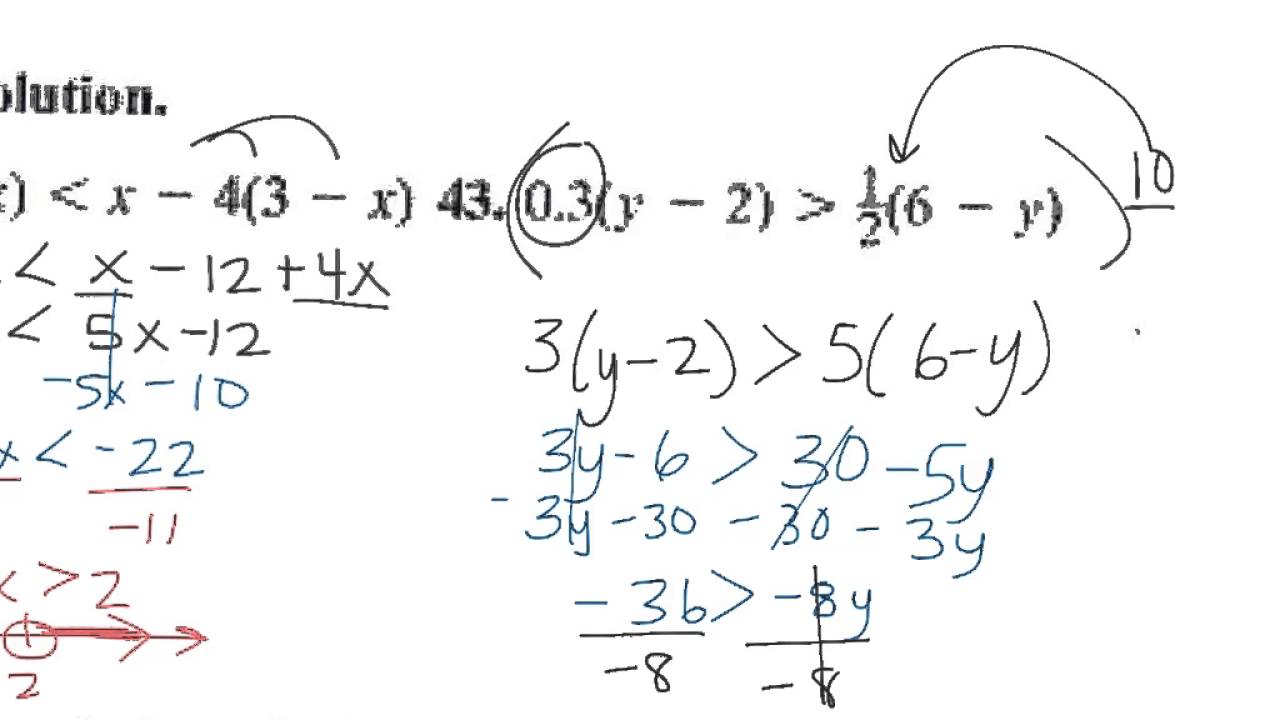 olution.
x) < x − 4(3 − x) 43. 0.3(y − 2) > ½(6 − y) 10
< x − 12 + 4x
< 5x − 12
−5x − 10
x < −22
−11
x > 2
2
3(y − 2) > 5(6 − y)
3y − 6 > 30 − 5y
− 3y − 30 − 30 − 3y
− 36 > −8y
−8 −8